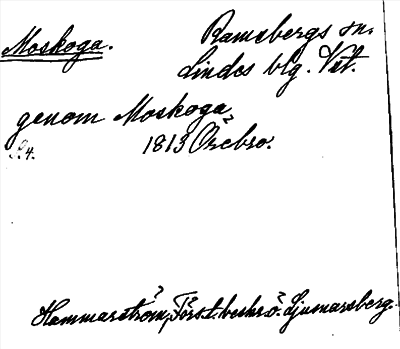 Moskoga.
Ramsbergs sn.
Lindes blg. Vstm.
genom Moskoga
S. 4.
1813 Örebro.
Hammarström, Först. beskr. ö. Ljusnarsberg.